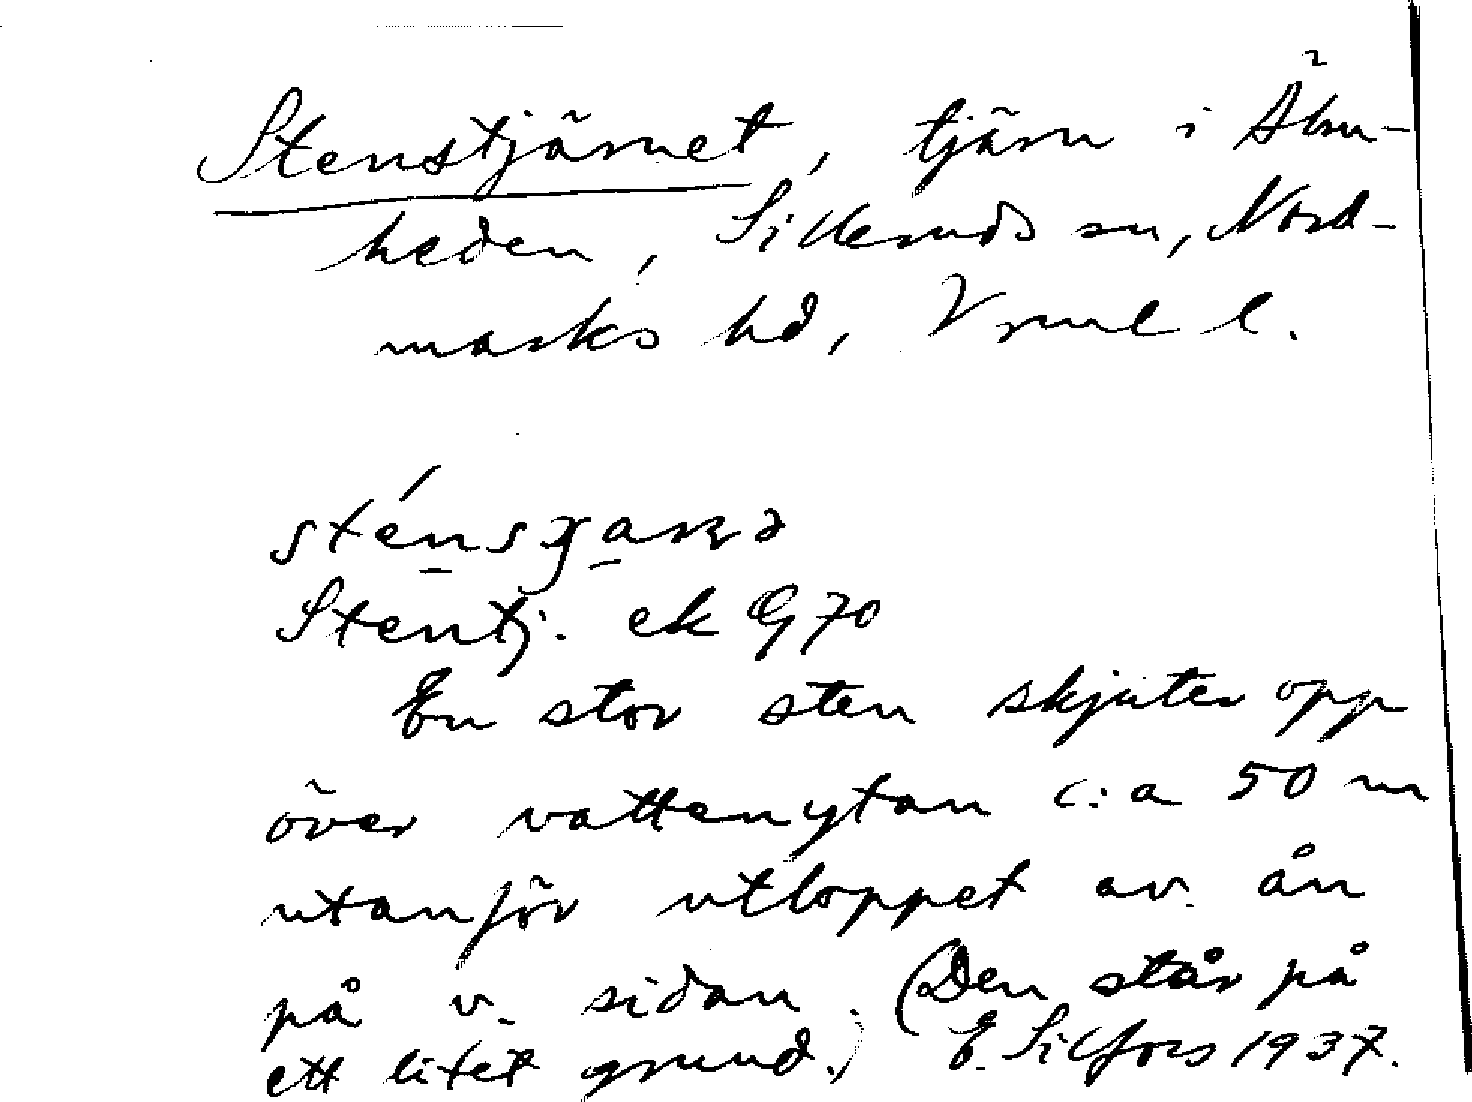 Stenstjärnet, tjärn i Århu-
heden, Silleruds sn, Nord-
marks hd, Vrml l.
sténsɟaṇə
Stentj. ek G 70
En stor sten skjuter opp
över vattenytan c:a 50 m
utanför utloppet av ån
på v. sidan. (Den står på
ett litet grund.) E. Silfors 1937.